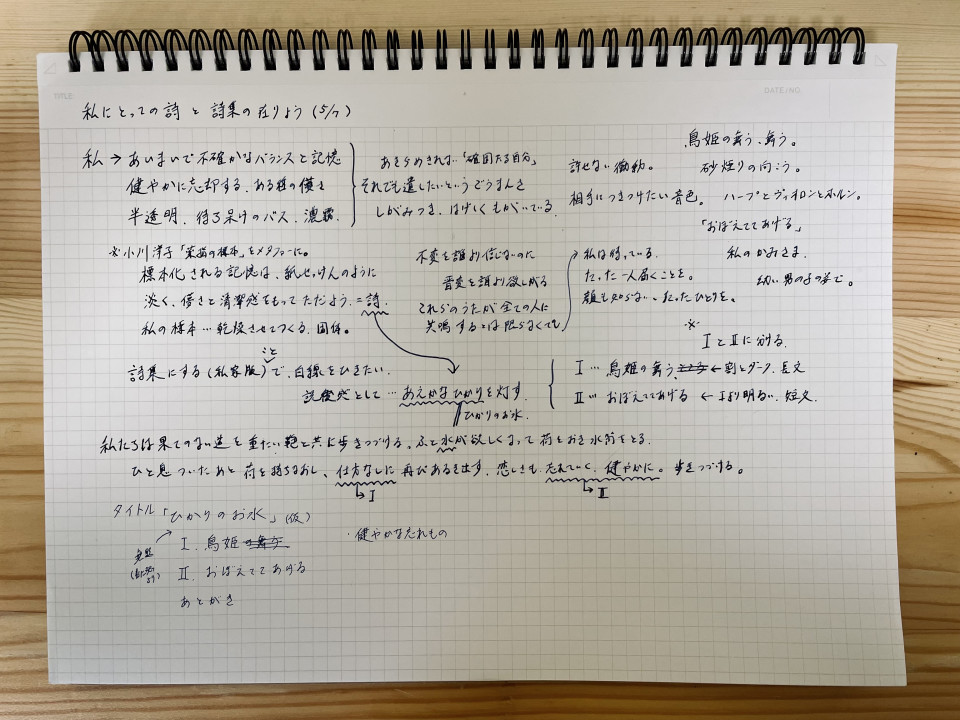 TITLE
DATE/NO.
私にとっての詩 と 詩集の在りよう (5/7)
私 → あいまいで不確かなバランスと記憶
健やかに忘却する、ある種の儚さ
半透明、待ち呆けのバス、濃霧、
あきらめきれない「確固たる自分」
それでも遺したいというごうまんさ
しがみつき、はげしくもがいている。
鳥姫の舞う、舞う。
許せない微動。 砂煙りの向こう。
相手につきつけたい音色。 ハープとヴィオロンとホルン。
「おぼえててあげる」
私のかみさま、
幼い男の子の姿で。
※小川洋子「薬指の標本」をメタファーに。
標本化される記憶は、紙せっけんのように
淡く、儚さと清潔感をもってただよう。=詩
私の標本…乾燥させてつくる、固体。
不変を誰より信じないのに
普変を誰より欲しがる
これらのうたが全ての人に
共鳴するとは限らなくても
私は待っている。
たった一人届くことを。
顔も知らない、たったひとりを。
※
ⅠとⅡに分ける。
詩集にする(私家版)ことで、白線をひきたい。
読後感として…あえかなひかりを灯す。
ひかりのお水。
Ⅰ… 鳥姫の舞う、 ← 割とダーク、長文
Ⅱ… おぼえててあげる ← Ⅰより明るい、短文
私たちは果てのない道を重たい鞄と共に歩きつづける。ふと水が欲しくなって荷をおき水筒をとる。
ひと息ついたあと荷を持ちなおし、仕方なしに再びあるき出す。悲しさも忘れていく、健やかに。歩きつづける。
→Ⅰ
→Ⅱ
タイトル「ひかりのお水」(仮)
Ⅰ. 鳥姫
Ⅱ. おぼえててあげる
あとがき
・健やかな忘れもの